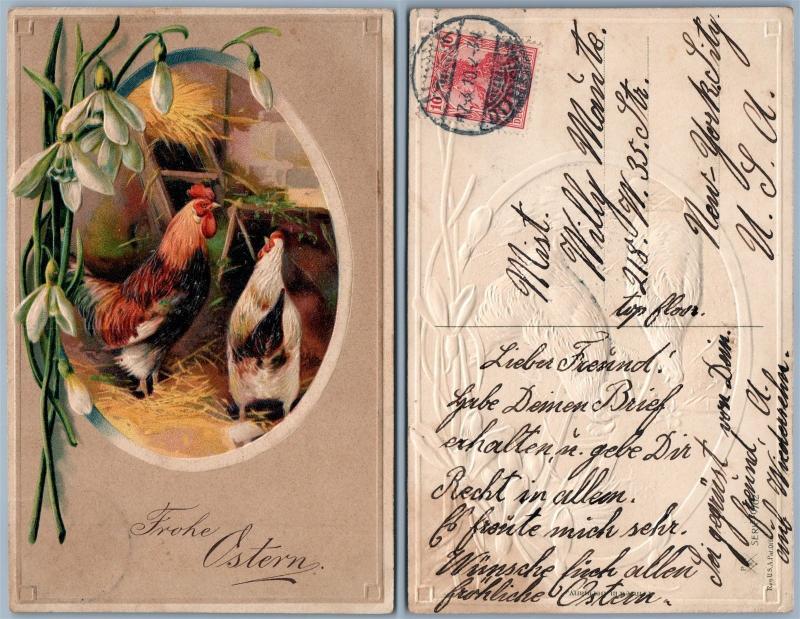 Frohe
Ostern.
10 10
17.3.10.
Mist.
Willy Mante.
218. W. 35. Str.
top floor.
New-York City.
U. S. A.
Lieber Freund!
Habe Deinen Brief
erhalten, u. gebe Dir
Recht in allem.
Es froute mich sehr.
Wünsche Euch allen
fröhliche Ostern.-
Sei gegrüst von Dein.
Freund, A.
auf Wiedersehn.